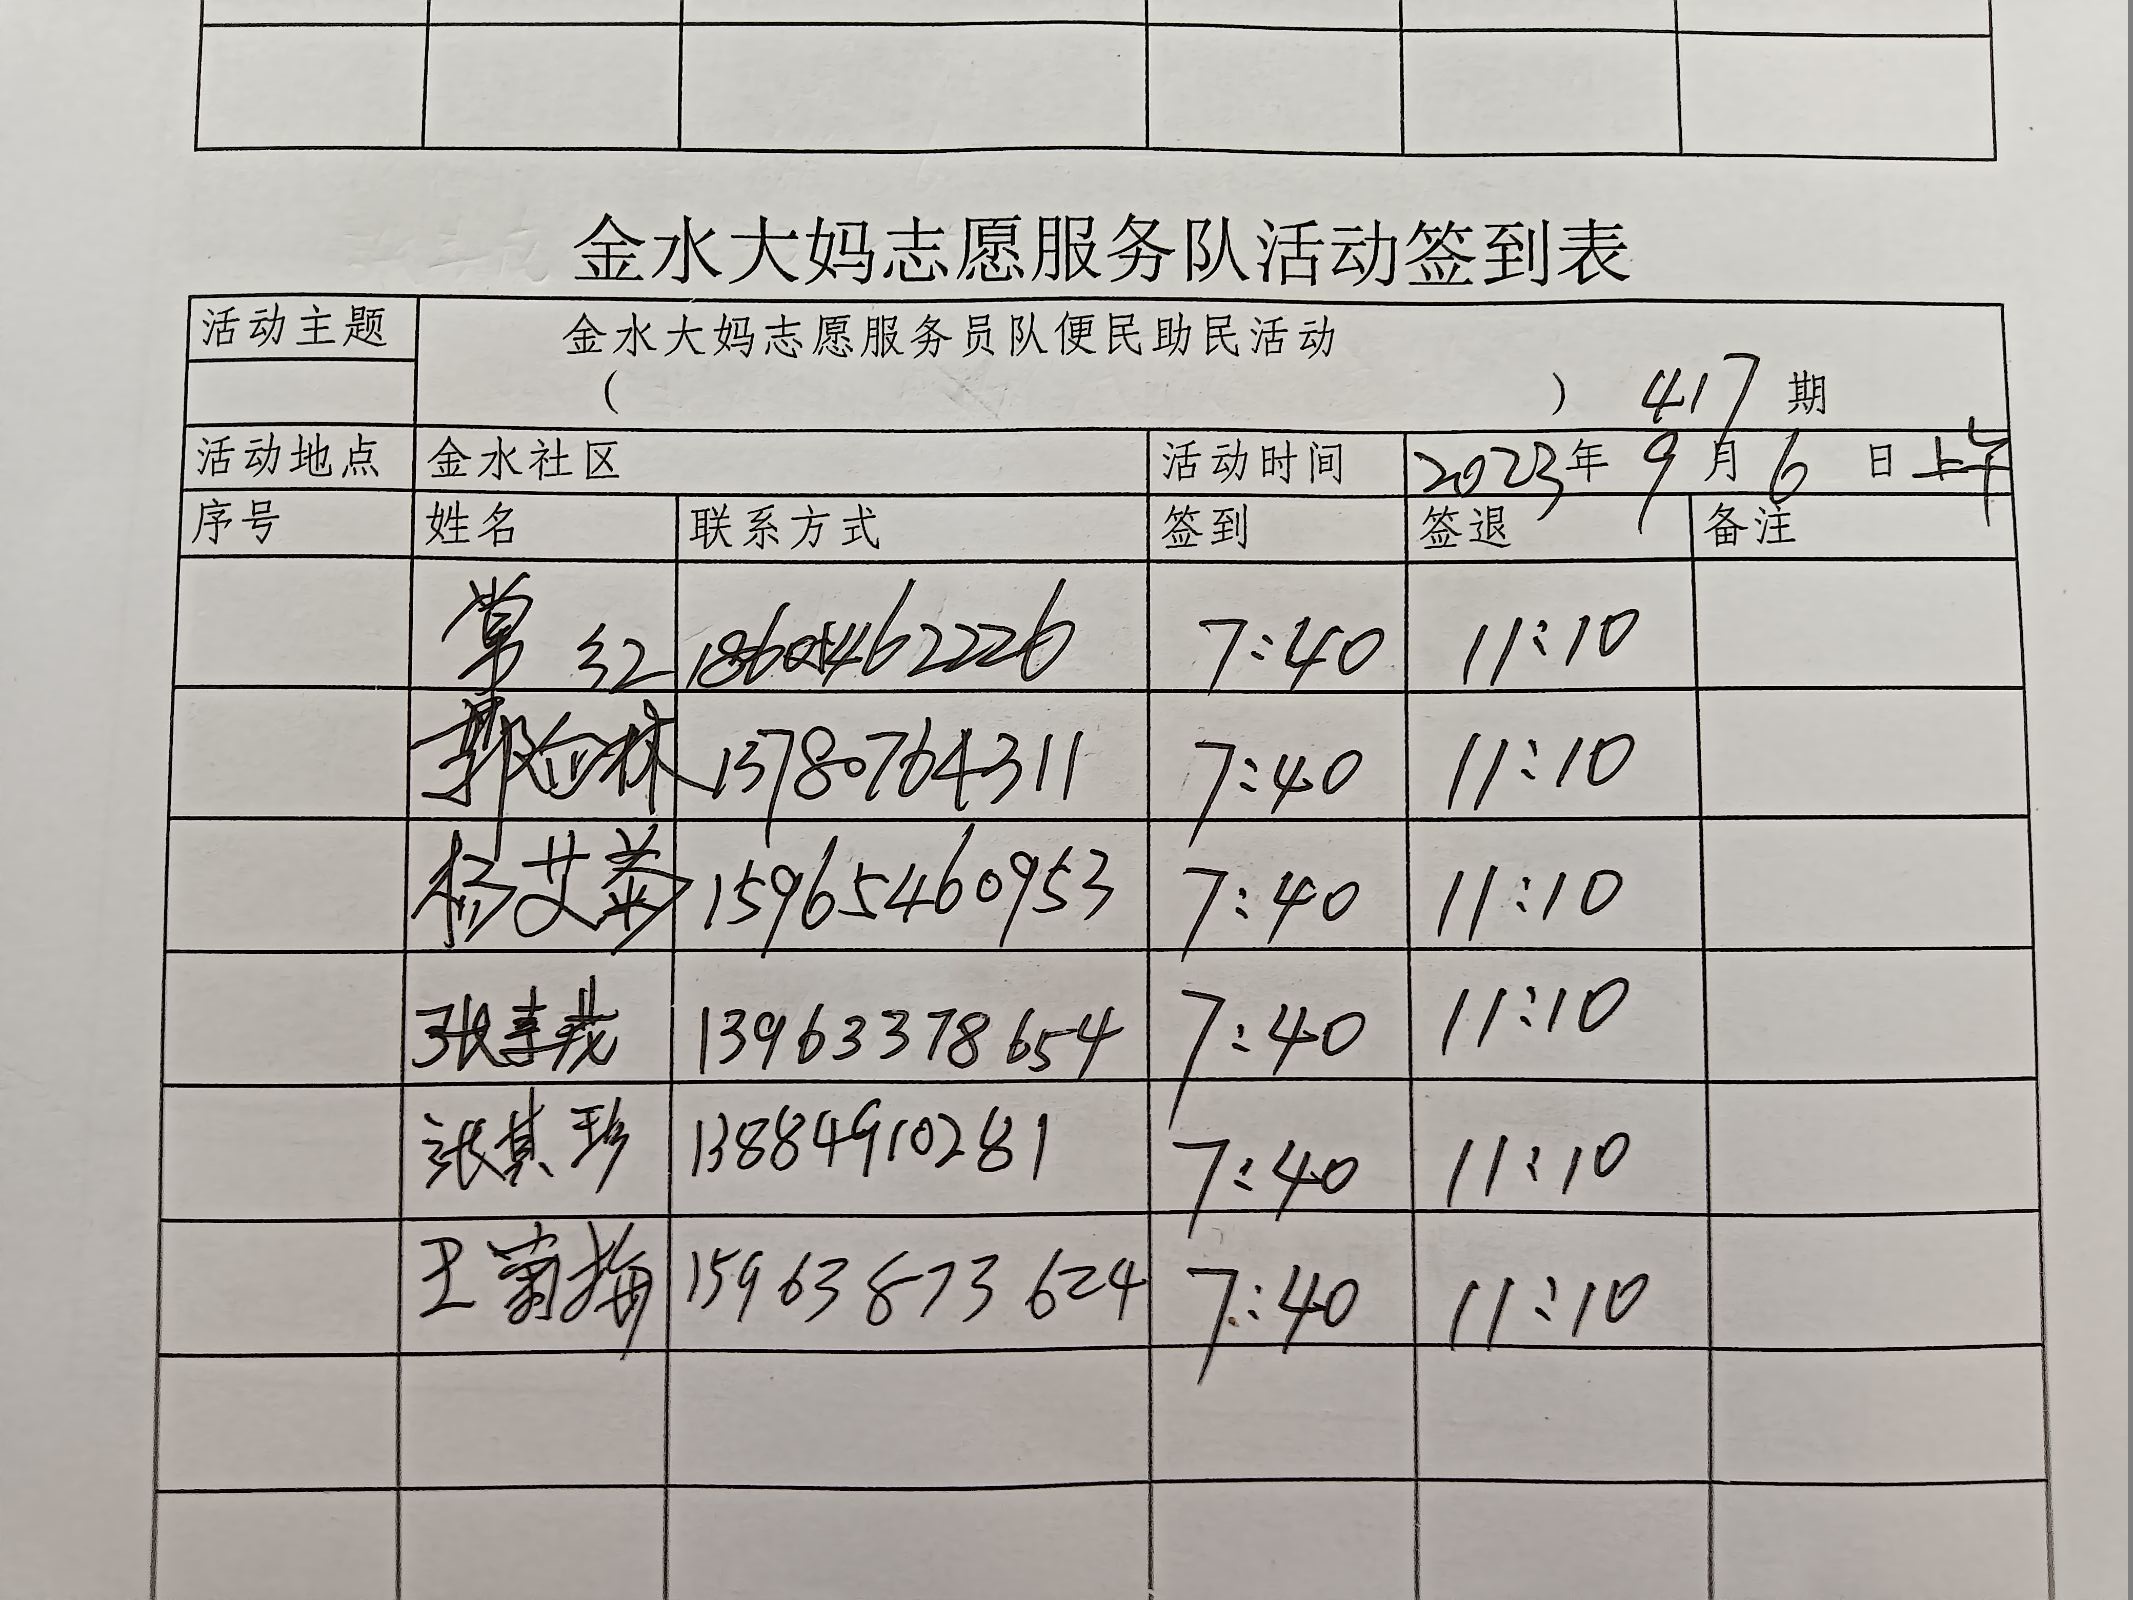 金水大妈志愿服务队活动签到表
活动主题 金水大妈志愿服务员队便民助民活动
( ) 417 期
活动地点 金水社区 活动时间 2023年 9 月 6 日 上午
序号 姓名 联系方式 签到 签退 备注
常红 18605462226 7:40 11:10
郭 林 13780764311 7:40 11:10
杨艾 15965460953 7:40 11:10
张 13963378654 7:40 11:10
张其珍 13884910281 7:40 11:10
王菊梅 15963873624 7:40 11:10